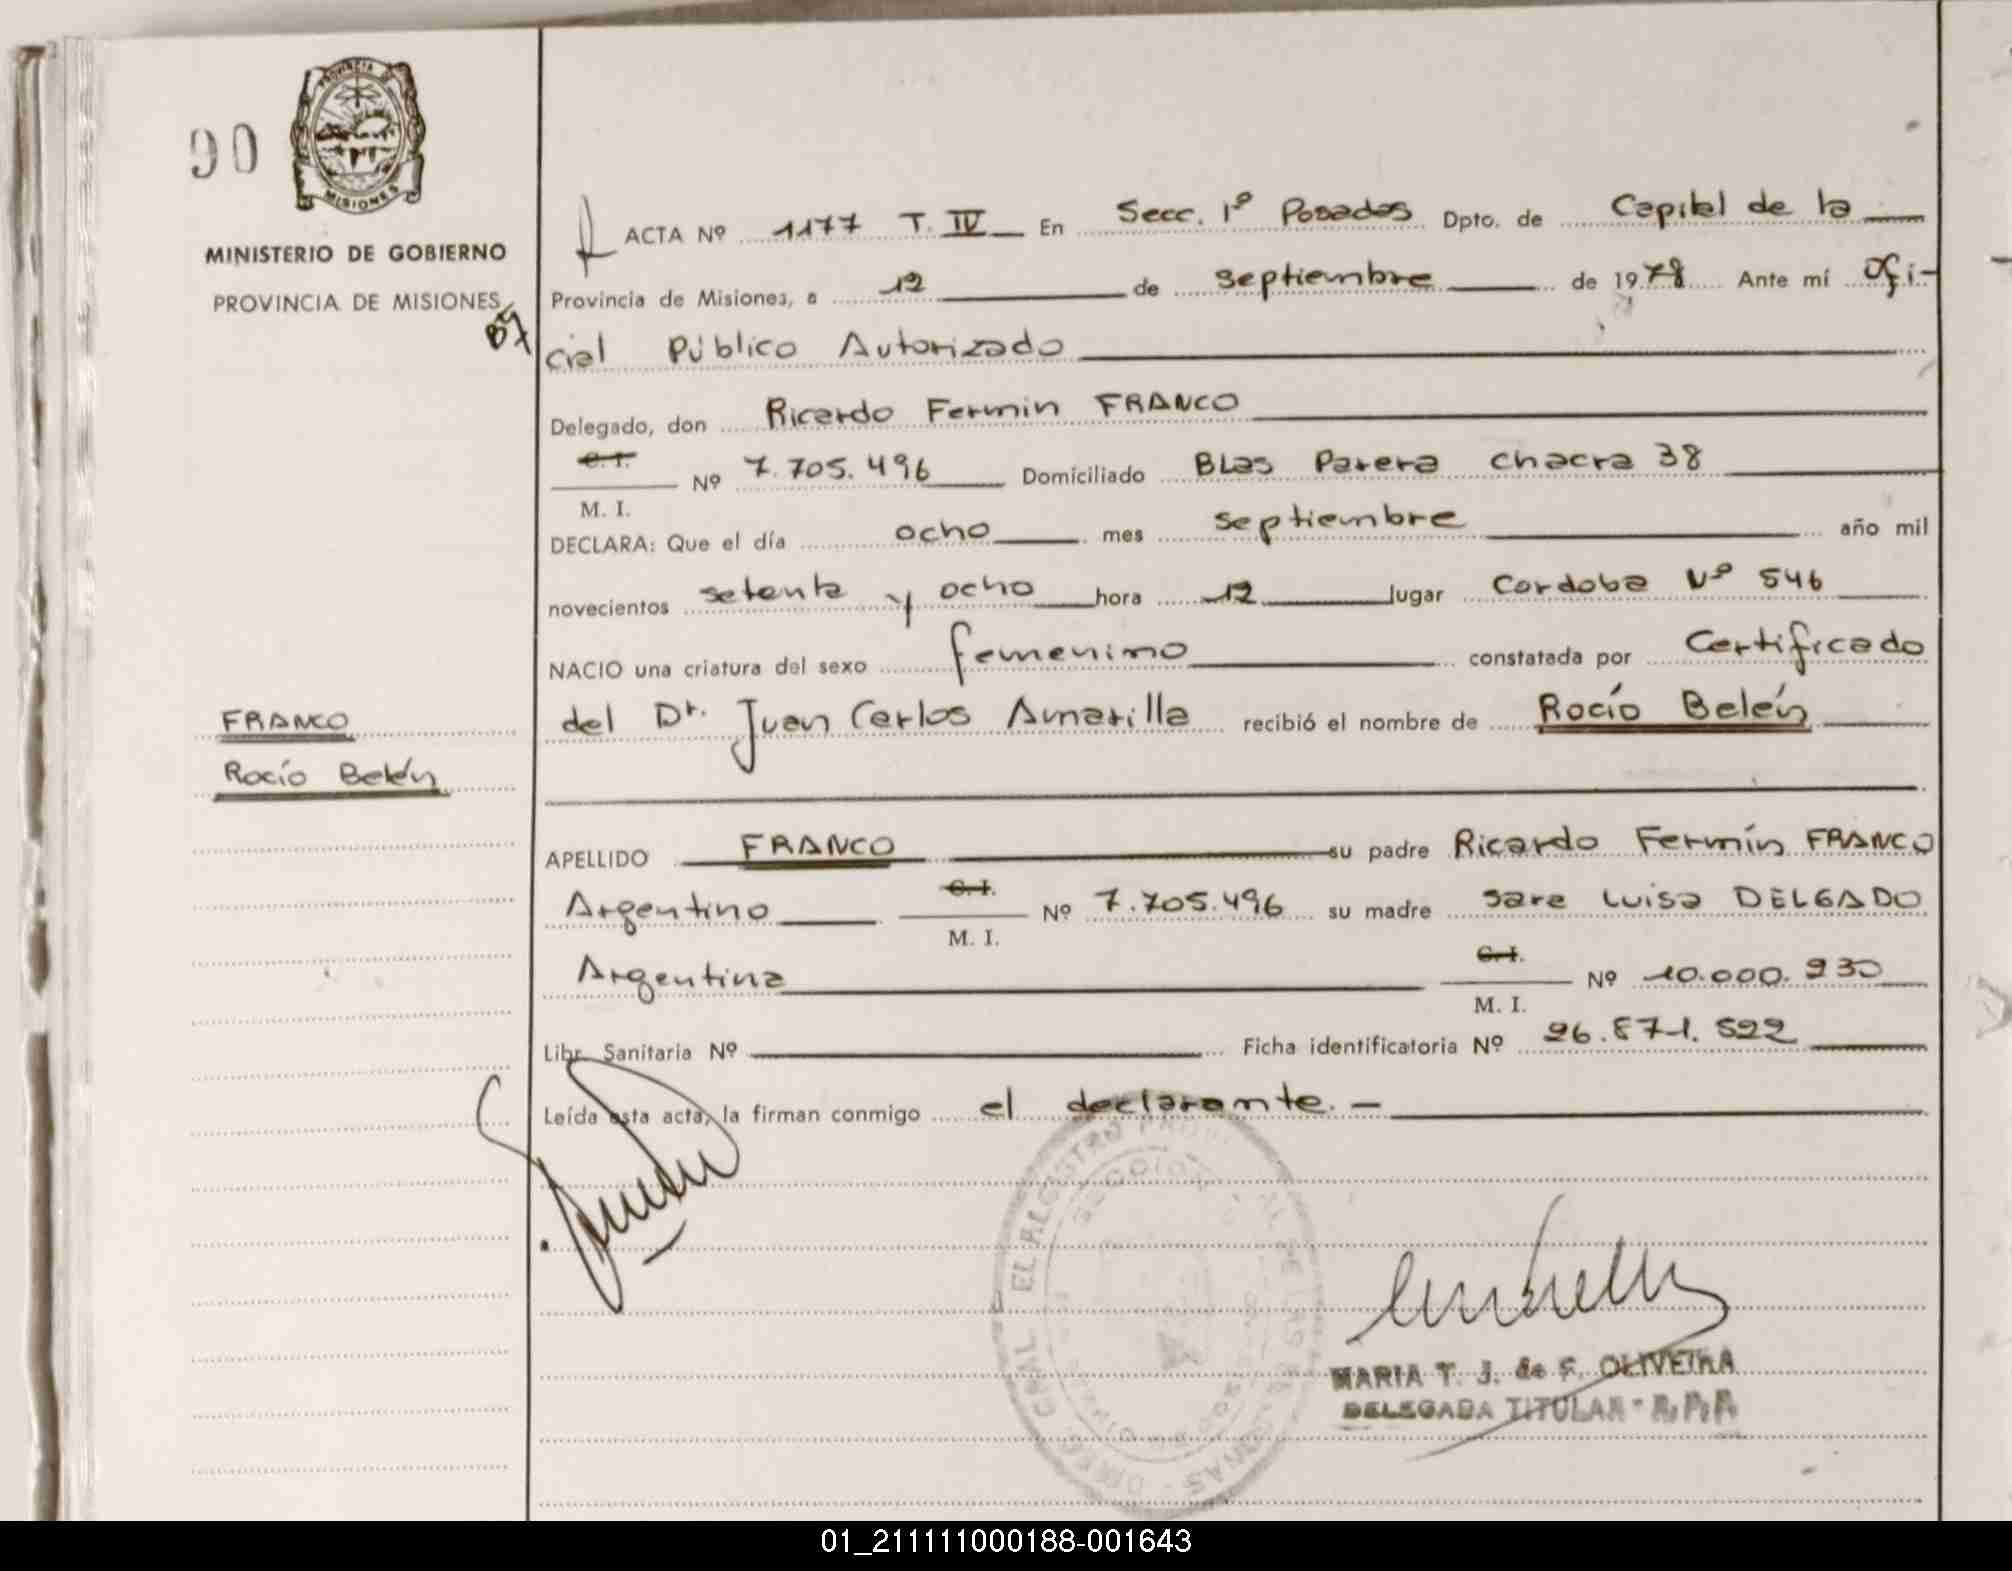 90
PROVINCIA DE
MISIONES
MINISTERIO DE GOBIERNO
PROVINCIA DE MISIONES
ACTA Nº 1177 T. IV En Secc. 1º Posadas Dpto. de Capital de la
Provincia de Misiones, a 12 de septiembre de 1978 Ante mí Ofi-
cial Público Autorizado
Delegado, don Ricardo Fermin FRANCO
C. I.
Nº 7.705.496 Domiciliado Blas Parera chacra 38
M. I.
DECLARA: Que el día ocho mes septiembre año mil
novecientos setenta y ocho hora 12 lugar Cordoba Nº 546
NACIO una criatura del sexo femenino constatada por Certificado
del Dr. Juan Carlos Amarilla recibió el nombre de Rocío Belén
FRANCO
Rocío Belén
APELLIDO FRANCO su padre Ricardo Fermín FRANCO
C. I.
Argentino Nº 7.705.496 su madre Sara Luisa DELGADO
M. I.
C. I.
Argentina Nº 10.000.930
M. I.
Libr. Sanitaria Nº Ficha identificatoria Nº 26.871.522
Leída esta acta, la firman conmigo el declarante.-
MARIA T. J. de F. OLIVEIRA
DELEGADA TITULAR - R.P.P.
01_211111000188-001643